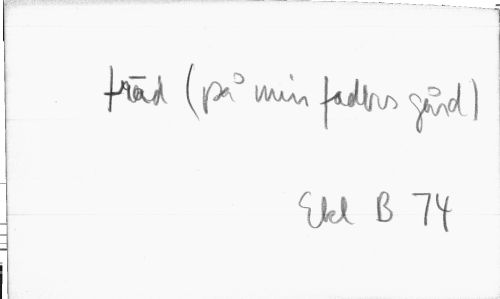 träd (på min faders gård)
Ekl B 74